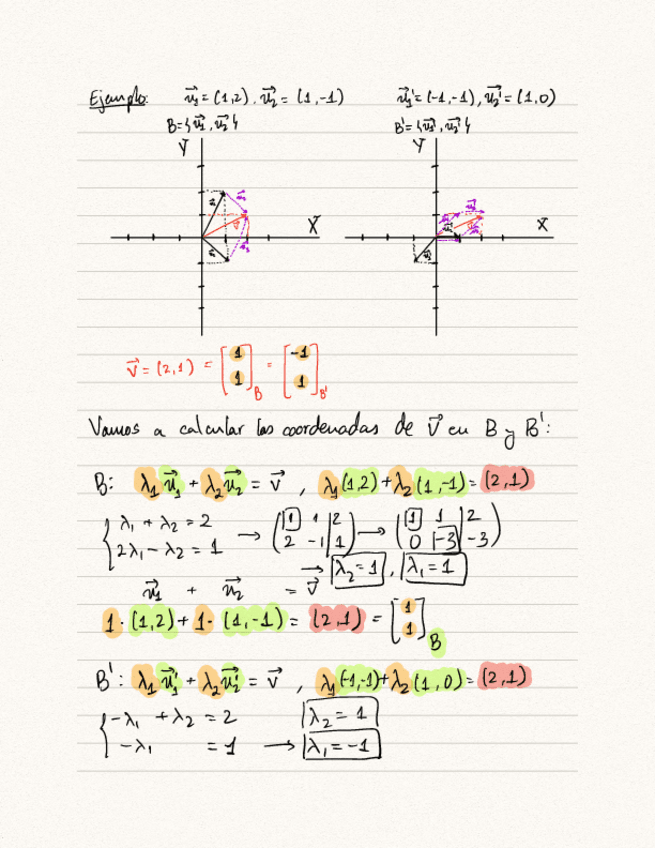 Ejemplo: u⃗₁ = (1,2), u⃗₂ = (1,-1) u⃗₁' = (-1,-1), u⃗₂' = (1,0)
B = {u⃗₁, u⃗₂} B' = {u⃗₁', u⃗₂'}
Y Y
X X
v⃗ = (2,1) = [1 1]_B = [-1 1]_B'
Vamos a calcular las coordenadas de v⃗ en B y B':
B: λ₁ u⃗₁ + λ₂ u⃗₂ = v⃗ , λ₁(1,2) + λ₂(1,-1) = (2,1)
{ λ₁ + λ₂ = 2 → (1 1 | 2 → (1 1 | 2
2λ₁ - λ₂ = 1 2 -1 | 1) 0 -3 | -3)
→ λ₂ = 1 , λ₁ = 1
u⃗₁ + u⃗₂ = v⃗
1·(1,2) + 1·(1,-1) = (2,1) = [1 1]_B
B': λ₁ u⃗₁' + λ₂ u⃗₂' = v⃗ , λ₁(-1,-1) + λ₂(1,0) = (2,1)
{ -λ₁ + λ₂ = 2 λ₂ = 1
-λ₁ = 1 → λ₁ = -1